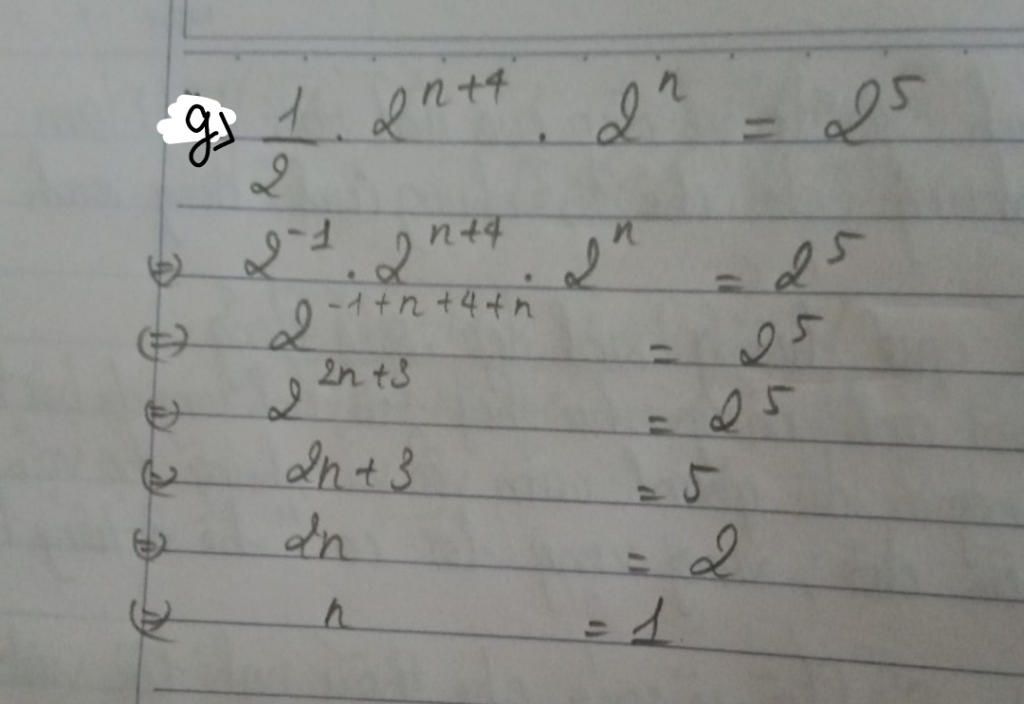 g, 1/2 . 2^{n+4} . 2^n = 2^5
⇔ 2^{-1} . 2^{n+4} . 2^n = 2^5
⇔ 2^{-1+n+4+n} = 2^5
⇔ 2^{2n+3} = 2^5
⇔ 2n+3 = 5
⇔ 2n = 2
⇔ n = 1